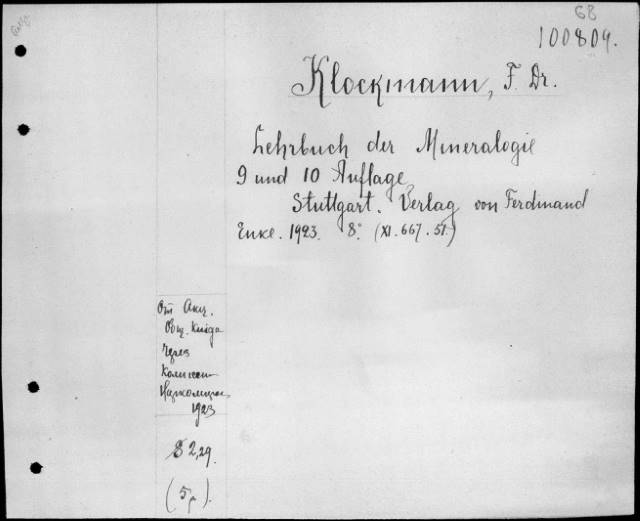 68
100804.
Klockmann, F. Dr.
Lehrbuch der Mineralogie
9 und 10 Auflage.
Stuttgart. Verlag von Ferdinand
Enke. 1923. 8° (XI. 667. 51.)
От Акц.
Общ. Книга
через
1923
$ 2,29.